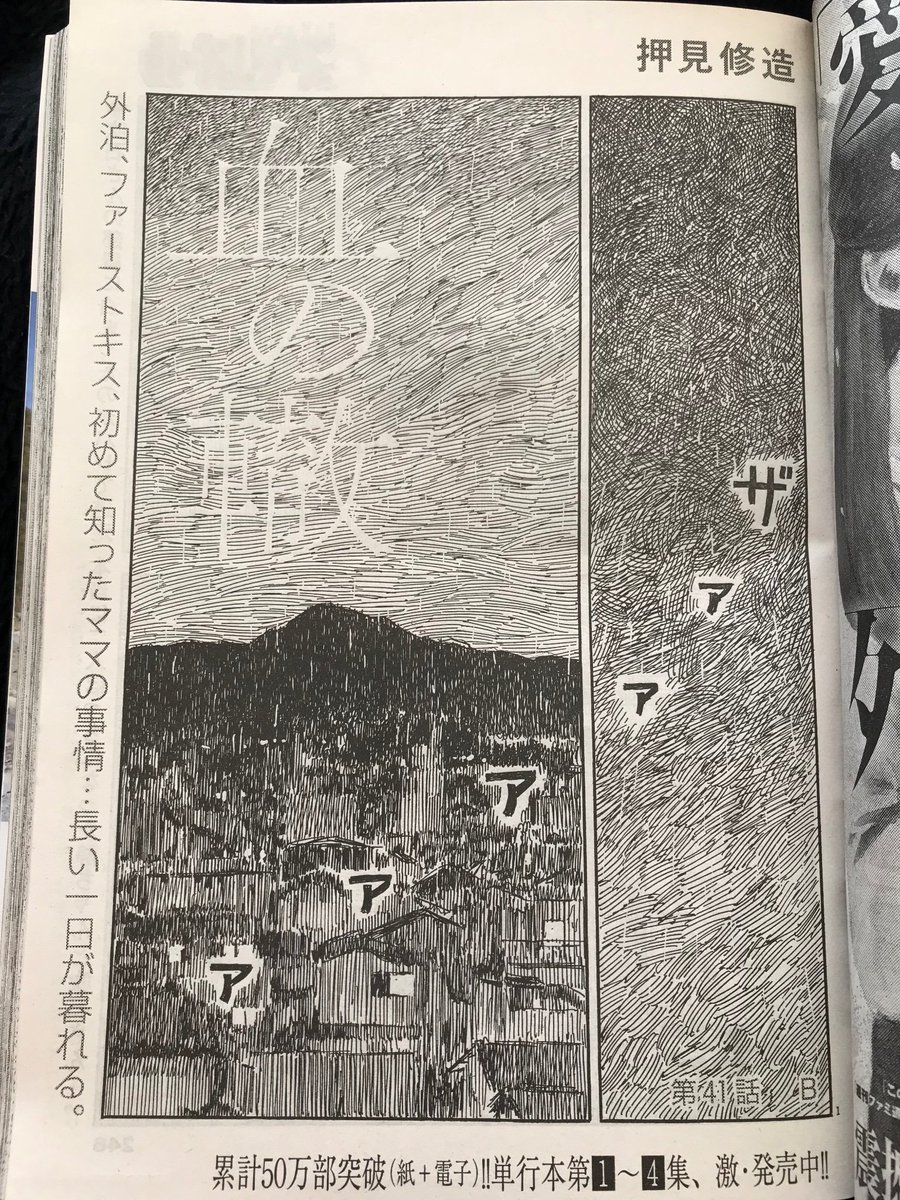 押見修造
ザァァ
ァァァ
第41話 B
1
血の轍
外泊、ファーストキス、初めて知ったママの事情…長い一日が暮れる。
累計50万部突破(紙+電子)!!単行本第1〜4集、激・発売中!!